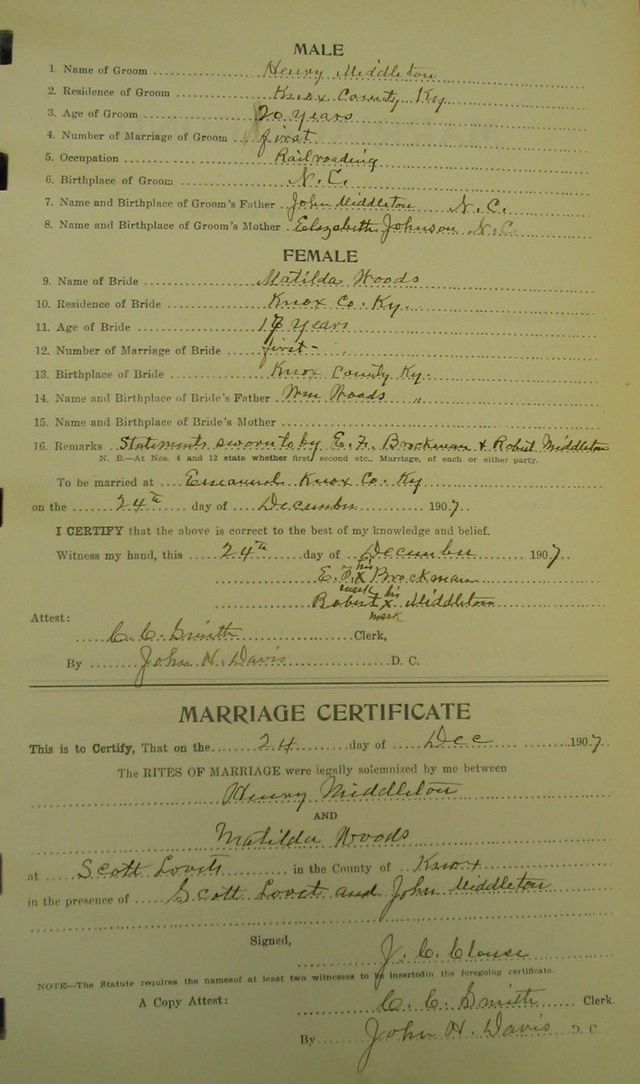 MALE
1. Name of Groom Henry Middleton
2. Residence of Groom Knox County Ky
3. Age of Groom 20 years
4. Number of Marriage of Groom first
5. Occupation Railroading
6. Birthplace of Groom N.C.
7. Name and Birthplace of Groom's Father John Middleton N.C.
8. Name and Birthplace of Groom's Mother Elizabeth Johnson N.C.
FEMALE
9. Name of Bride Matilda Woods
10. Residence of Bride Knox Co. Ky.
11. Age of Bride years
12. Number of Marriage of Bride first
13. Birthplace of Bride Knox County Ky.
14. Name and Birthplace of Bride's Father Wm Woods "
15. Name and Birthplace of Bride's Mother
16. Remarks Statements sworn to by E. F. Brockman & Robert Middleton
N. B.—At Nos. 4 and 12 state whether first second etc., Marriage, of each or either party.
To be married at Knox Co. Ky
on the 24th day of December 1907
I CERTIFY that the above is correct to the best of my knowledge and belief.
Witness my hand, this 24th day of December 1907.
his
E. F. X Brockman
mark his
Robert X Middleton
mark
Attest:
C. C. Smith Clerk,
By John H. Davis D. C.
MARRIAGE CERTIFICATE
This is to Certify, That on the 24 day of Dec 1907.
The RITES OF MARRIAGE were legally solemnized by me between
Henry Middleton
AND
Matilda Woods
at Scott in the County of Knox
in the presence of Scott and John Middleton
Signed, J. C. Clouse
NOTE—The Statute requires the namesof at least two witnesses to be insertedin the foregoing certificate.
A Copy Attest: C. C. Smith Clerk.
By John H. Davis D. C